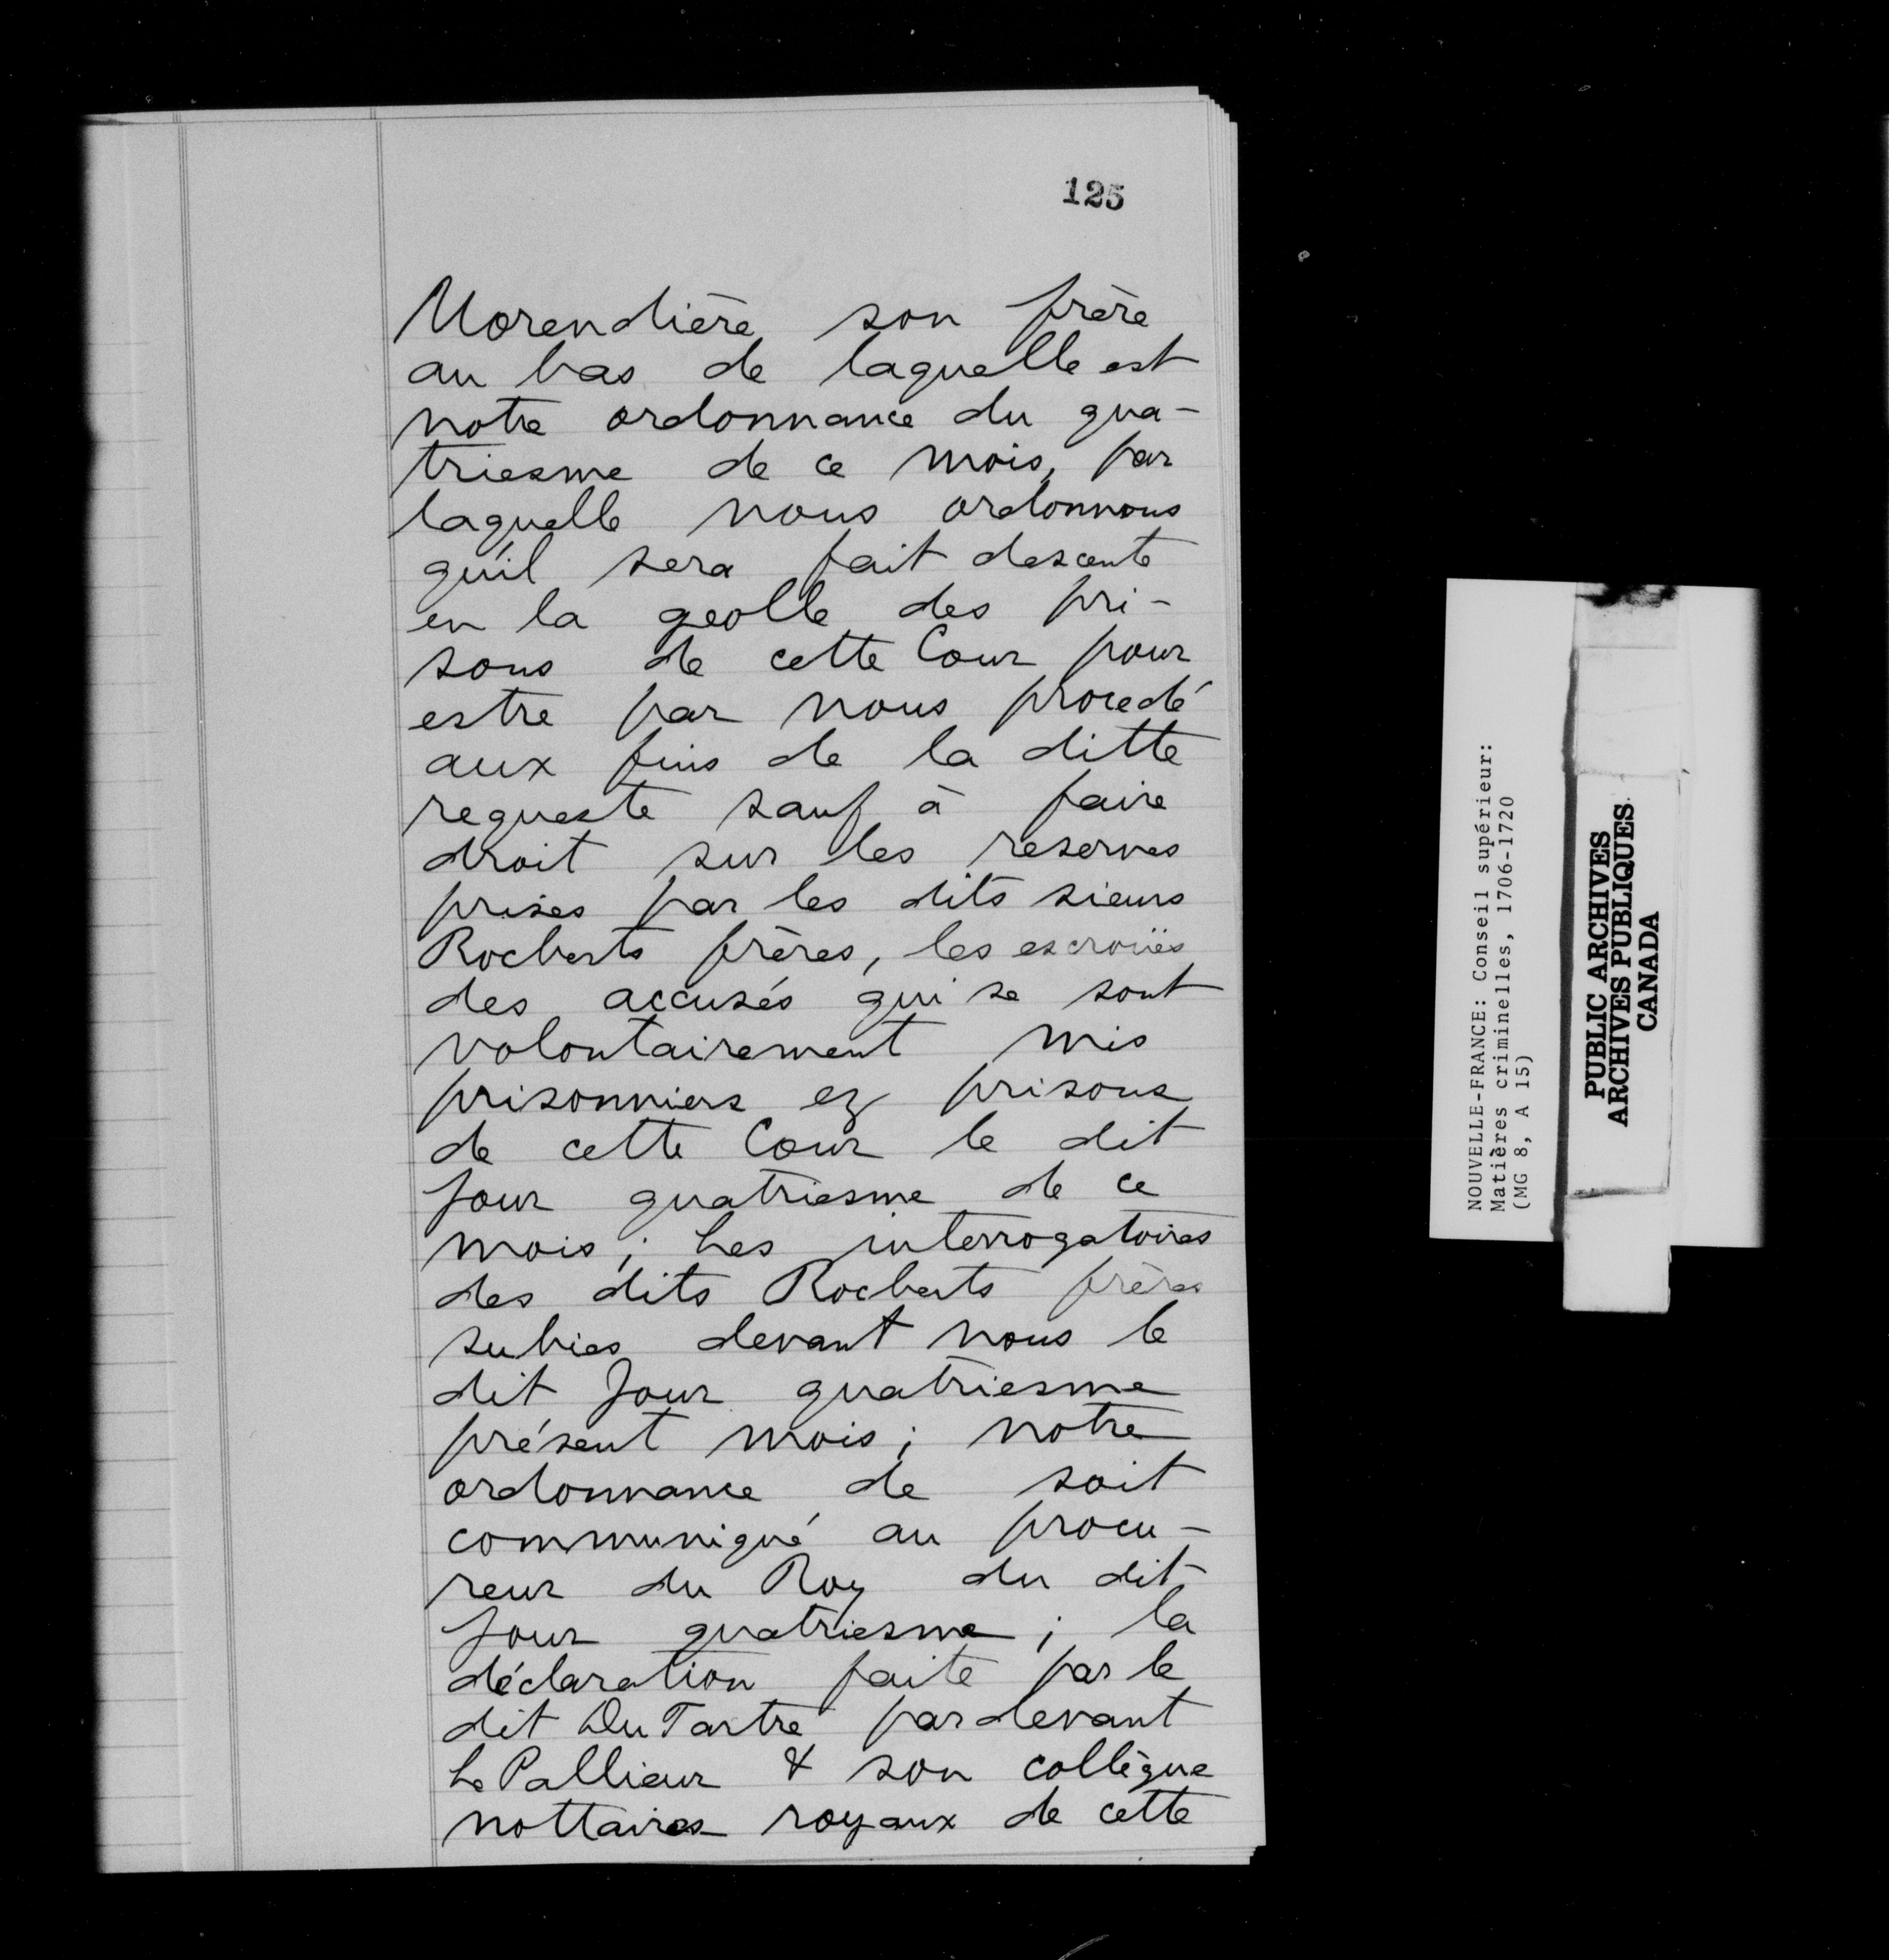 125
Morendière son frère
au bas de laquelle est
notre ordonnance du qua-
triesme de ce mois, par
laquelle nous ordonnons
qu'il sera fait descente
en la geolle des pri-
sons de cette Cour pour
estre par nous procedé
aux fins de la ditte
requeste sauf à faire
droit sur les reserves
prises par les dits sieurs
Rocberts frères, les escroües
des accusés qui se sont
volontairement mis
prisonniers ez prisons
de cette Cour le dit
Jour quatriesme de ce
mois; Les interrogatoires
des dits Rocberts frères
subies devant nous le
dit Jour quatriesme
présent mois; notre
ordonnance de soit
communiqué au procu-
reur du Roy du dit
Jour quatriesme; la
déclaration faite par le
dit Du Tartre pardevant
Le Pallieur & son collègue
nottaires royaux de cette
NOUVELLE-FRANCE: Conseil supérieur:
Matières criminelles, 1706-1720
(MG 8, A 15)
PUBLIC ARCHIVES
ARCHIVES PUBLIQUES
CANADA